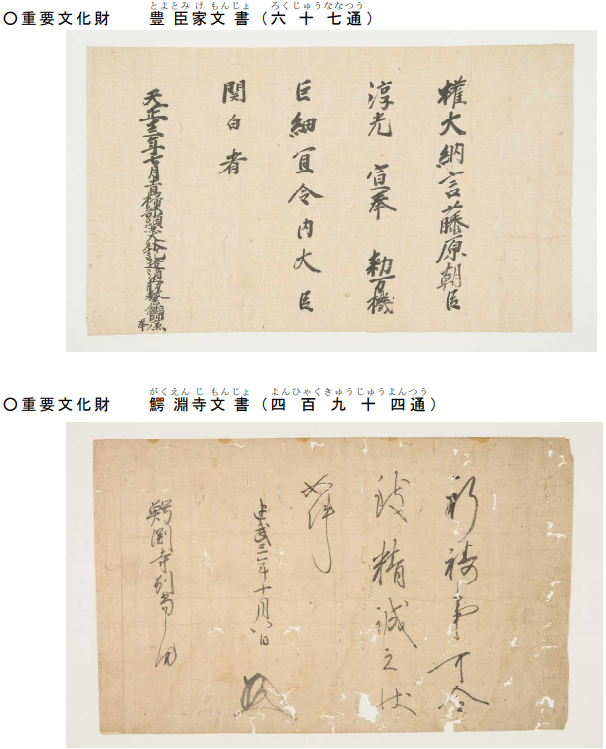 とよとみ け もんじょ ろくじゅうななつう
〇重要文化財 豊臣家文書(六十七通)
權大納言藤原朝臣
淳光 宣奉 勅万機
巨細宜令内大臣
関白者
天正十三年七月十一日掃部頭兼大外記造酒正
がくえん じ もんじょ よんひゃくきゅうじゅうよんつう
〇重要文化財 鰐淵寺文書(四百九十四通)
祈祷事可令
致精誠之状
如件
建武三年十月八日
鰐淵寺別当